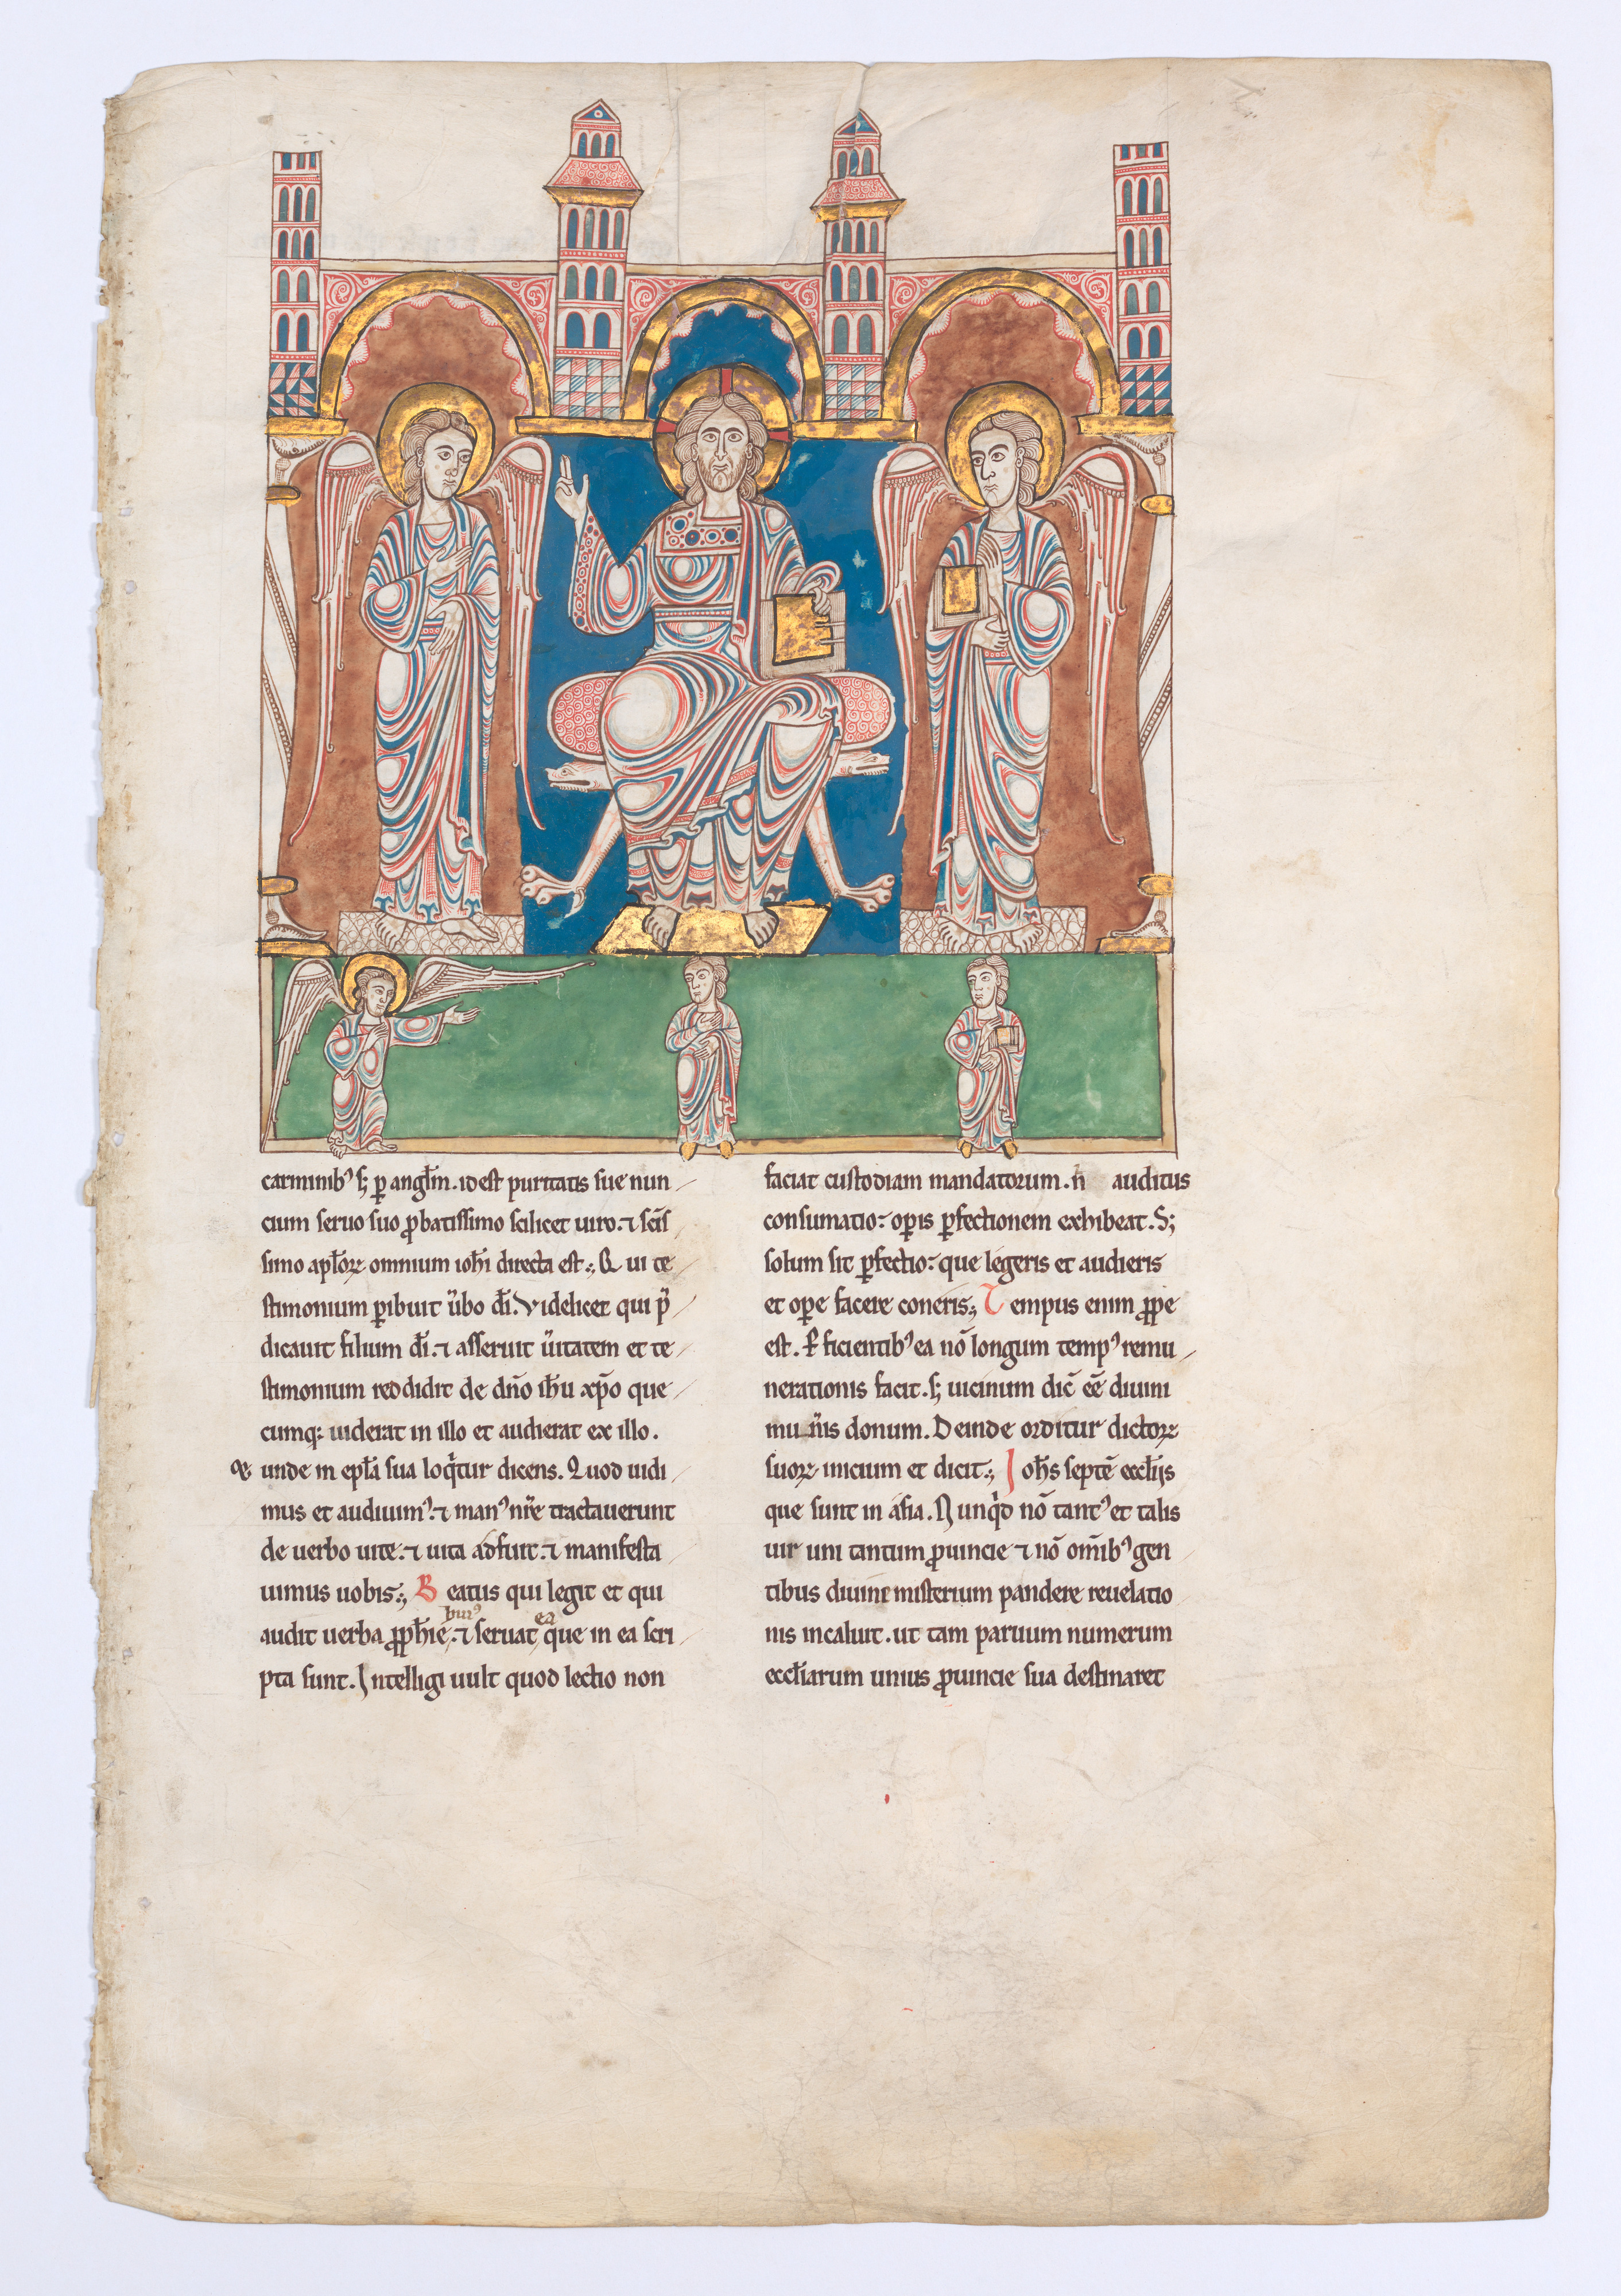 carminib᾽ s; ꝑ angłm. idest puritatis sue nun
cium seruo suo ꝓbatissimo scilicet uiro. ⁊ scis̄
simo apłoꝝ omnium iohi directa est ; Qui te
stimonium ꝑibuit ūbo dī. Videlicet qui p̄
dicauit filium dī. ⁊ asseruit ūitatem et te
stimonium reddidit de dn̄o ih̄u xp̄o que
cumq: uiderat in illo et audierat ex illo.
unde in epła sua loqͥtur dicens. Quod uidi
mus et audiuim᾽. ⁊ man᾽ nr̄e tractauerunt
de uerbo uite. ⁊ uita adfuit. ⁊ manifesta
uimus uobis ; Beatus qui legit et qui
hui᾽ ea
audit uerba ꝓph̄ie. ⁊ seruat que in ea scri
pta sunt. Intelligi uult quod lectio non
faciat custodiam mandatorum. n̄ auditus
consumatio: oꝑis ꝑfectionem exhibeat. S;
solum sit ꝑfectio: que legeris et audieris
et oꝑe facere coneris ; Tempus enim ꝓpe
est. ꝑficientib᾽ ea nō longum temp᾽ remu
nerationis facit. s; uicinum dic̄ ee̅ diuini
mun̄is donum. Deinde orditur dictoꝝ
suoꝝ inicium et dicit ; Ioh̄s septē eccłijs
que sunt in asia. Nunqͥd nō tant᾽ et talis
uir uni tantum ꝓuincie ⁊ nō om̄ib᾽ gen
tibus diuini misterium pandere reuelatio
nis incaluit. ut tam paruum numerum
eccłiarum unius ꝓuincie sua destinaret